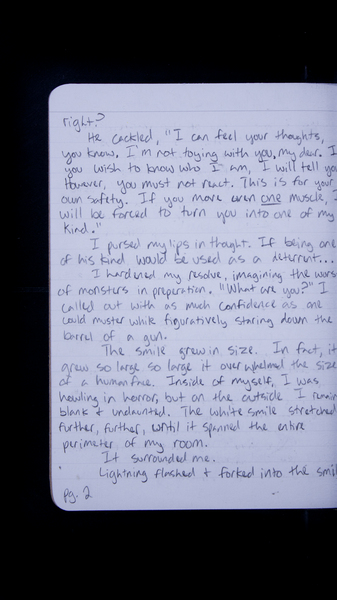 right?
He cackled, "I can feel your thoughts,
you know. I'm not toying with you, my dear. I
you wish to know who I am, I will tell you
However, you must not react. This is for your
own safety. If you move even one muscle, I
will be forced to turn you into one of my
kind."
I pursed my lips in thought. If being one
of his kind would be used as a deterrent...
I hardened my resolve, imagining the wors
of monsters in preparation. "What are you?" I
called out with as much confidence as one
could muster while figuratively staring down the
barrel of a gun.
The smile grew in size. In fact, it
grew so large so large it overwhelmed the size
of a human face. Inside of myself, I was
howling in horror, but on the outside I remain
blank & undaunted. The white smile stretched
further, further, until it spanned the entire
perimeter of my room.
It surrounded me.
Lightning flashed & forked into the smil
pg. 2